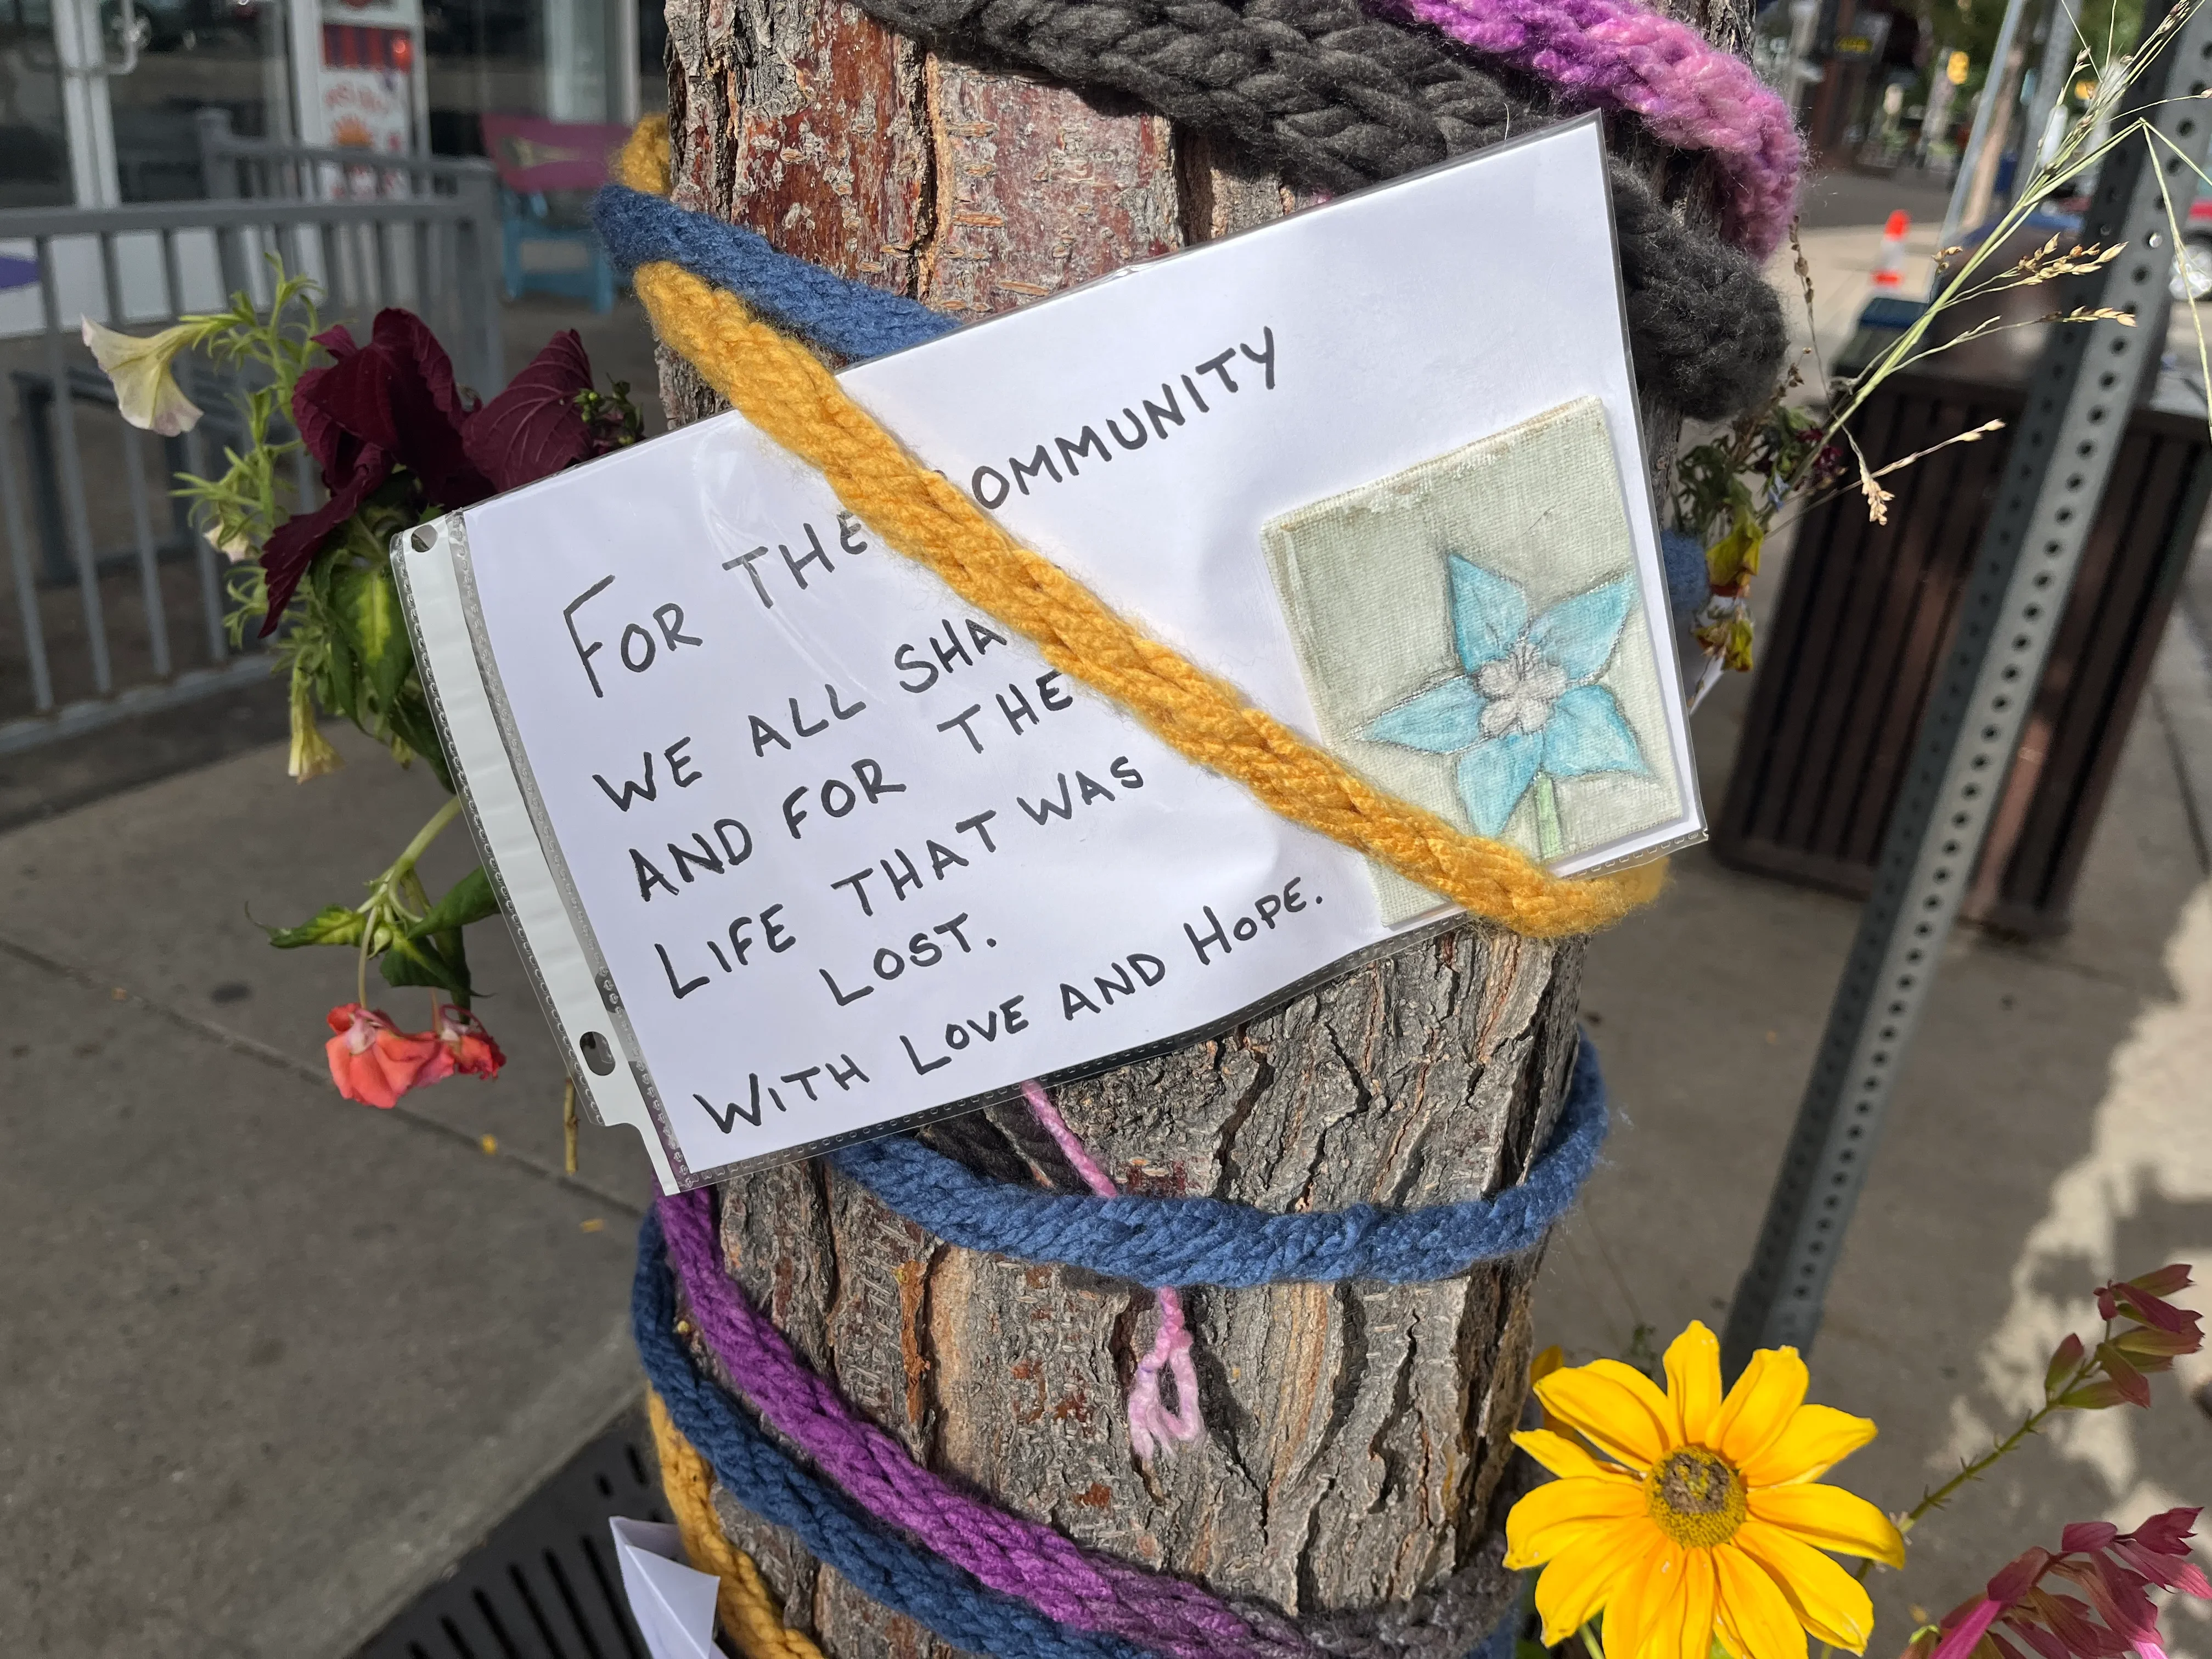 FOR THE COMMUNITY
WE ALL SHA
AND FOR THE
LIFE THAT WAS
LOST.
WITH LOVE AND HOPE.